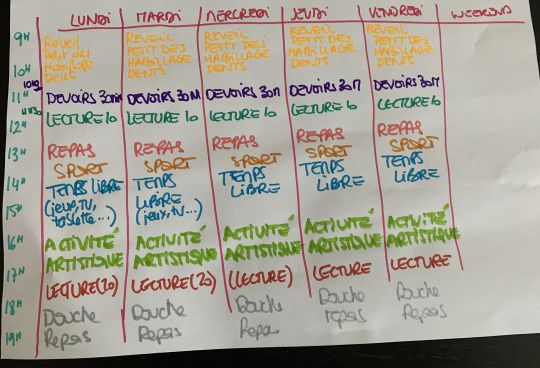 LUNDI MARDI MERCREDI JEUDI VENDREDI WEEKEND
9H
Reveil REVEIL REVEIL REVEIL REVEIL
Petit dej PETIT DEJ PETIT DEJ PETIT DEJ PETIT DEJ
Habillage HABILLAGE HABILLAGE HABILLAGE HABILLAGE
10H Dents DENTS DENTS DENTS DENTS
11H DEVOIRS 30min DEVOIRS 30M DEVOIRS 30M DEVOIRS 30M DEVOIRS 30M
11H30 LECTURE 10 LECTURE 10 LECTURE 10 LECTURE 10 LECTURE 10
12H
13H REPAS REPAS REPAS REPAS REPAS
SPORT SPORT SPORT SPORT SPORT
14H TEMPS LIBRE TEMPS TEMPS TEMPS TEMPS
(jeux, TV, LIBRE LIBRE LIBRE LIBRE
15H tablette...) (jeux, TV...)
16H ACTIVITÉ ACTIVITÉ ACTIVITÉ ACTIVITÉ ACTIVITÉ
ARTISTIQUE ARTISTIQUE ARTISTIQUE ARTISTIQUE ARTISTIQUE
17H LECTURE (20) LECTURE (20) (LECTURE) LECTURE LECTURE
18H Douche Douche Douche Douche Douche
19H Repas Repas Repa repas Repas